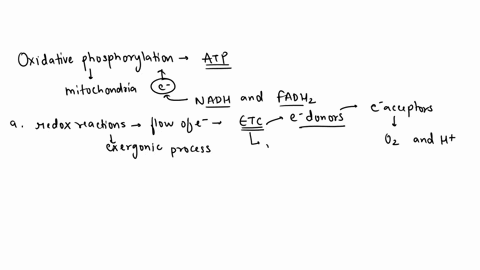 Oxidative phosphorylation → ATP
mitochondria e-
NADH and FADH2
a. redox reactions → flow of e- → ETC → e- donors → e- acceptors
exergonic process O2 and H+